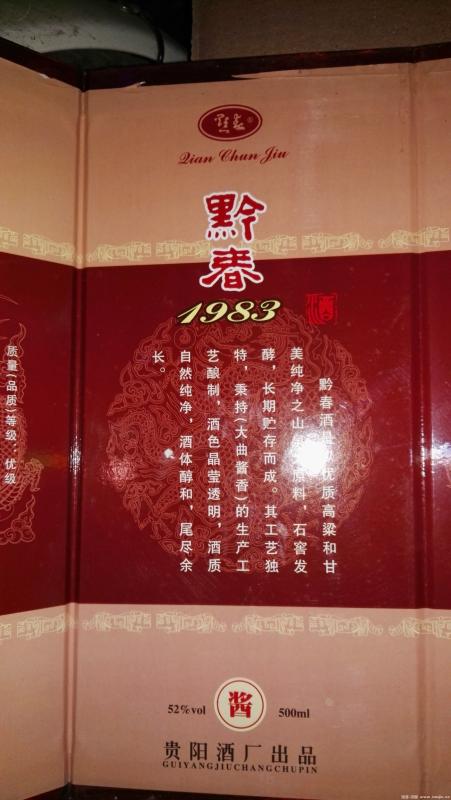 黔春
Qian Chun Jiu
黔春
1983
酒
黔春酒是以优质高粱和甘
美纯净之山泉为原料，石窖发
酵，长期贮存而成。其工艺独
特，秉持(大曲酱香)的生产工
艺酿制，酒色晶莹透明，酒质
自然纯净，酒体醇和，尾尽余
长。
质量(品质)等级：优级
52%vol
酱
500ml
贵阳酒厂出品
GUIYANGJIUCHANGCHUPIN